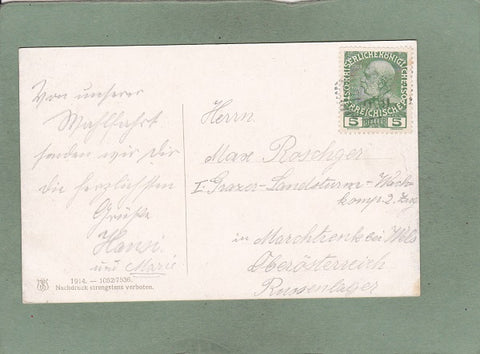 Von unserer
Wahlfahrt
senden wir Dir
die herzlichsten
Grüße
Hansi
und Marie
1914. — 1052/7536.
Nachdruck strengstens verboten.
5 HELLER 5
Herrn
Max Roschger
I. Grazer-Landsturm-Wach-
komp. 2. Zug
in Marchtrenk bei Wels
Oberösterreich
Russenlager